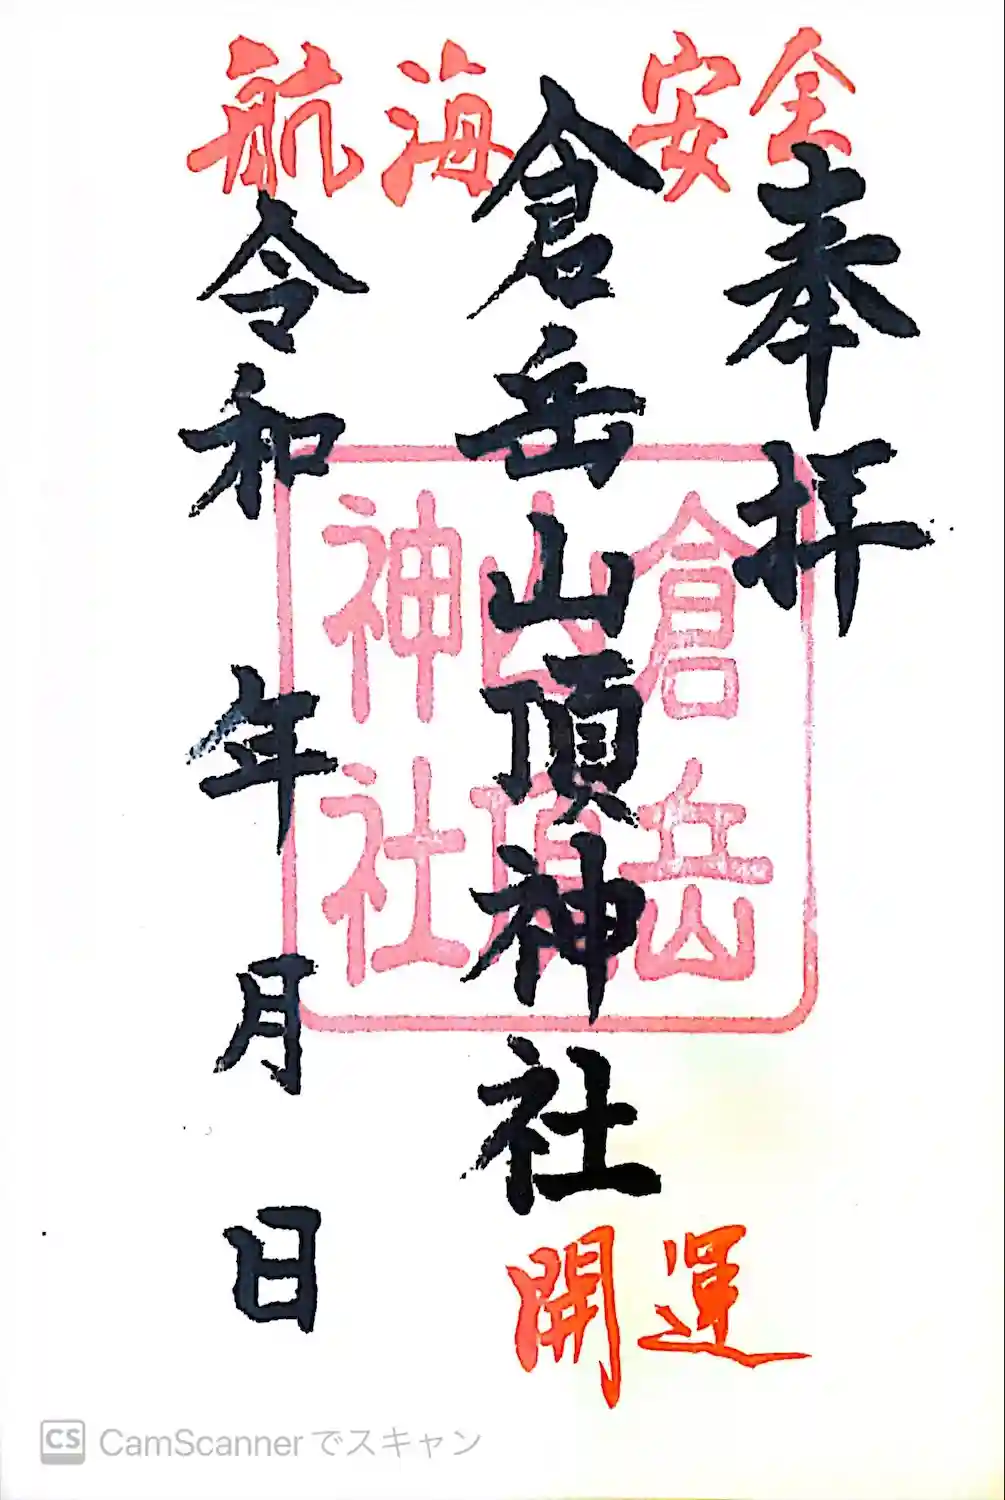 航海安全
奉拝
倉岳山頂神社
倉岳
山頂
神社
令和 年 月 日
開運
CS CamScannerでスキャン